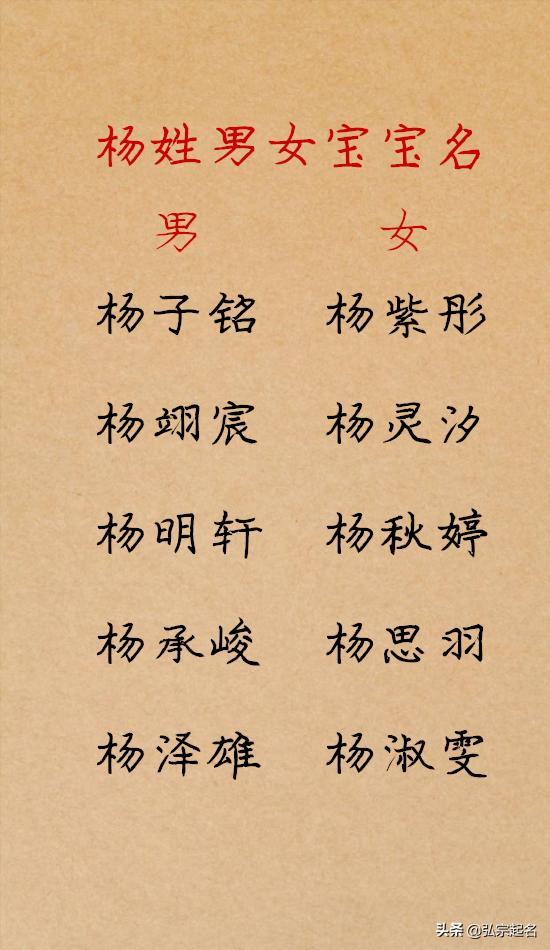 杨姓男女宝宝名
男 女
杨子铭 杨紫彤
杨翊宸 杨灵汐
杨明轩 杨秋婷
杨承峻 杨思羽
杨泽雄 杨淑雯
头条 @弘宗起名